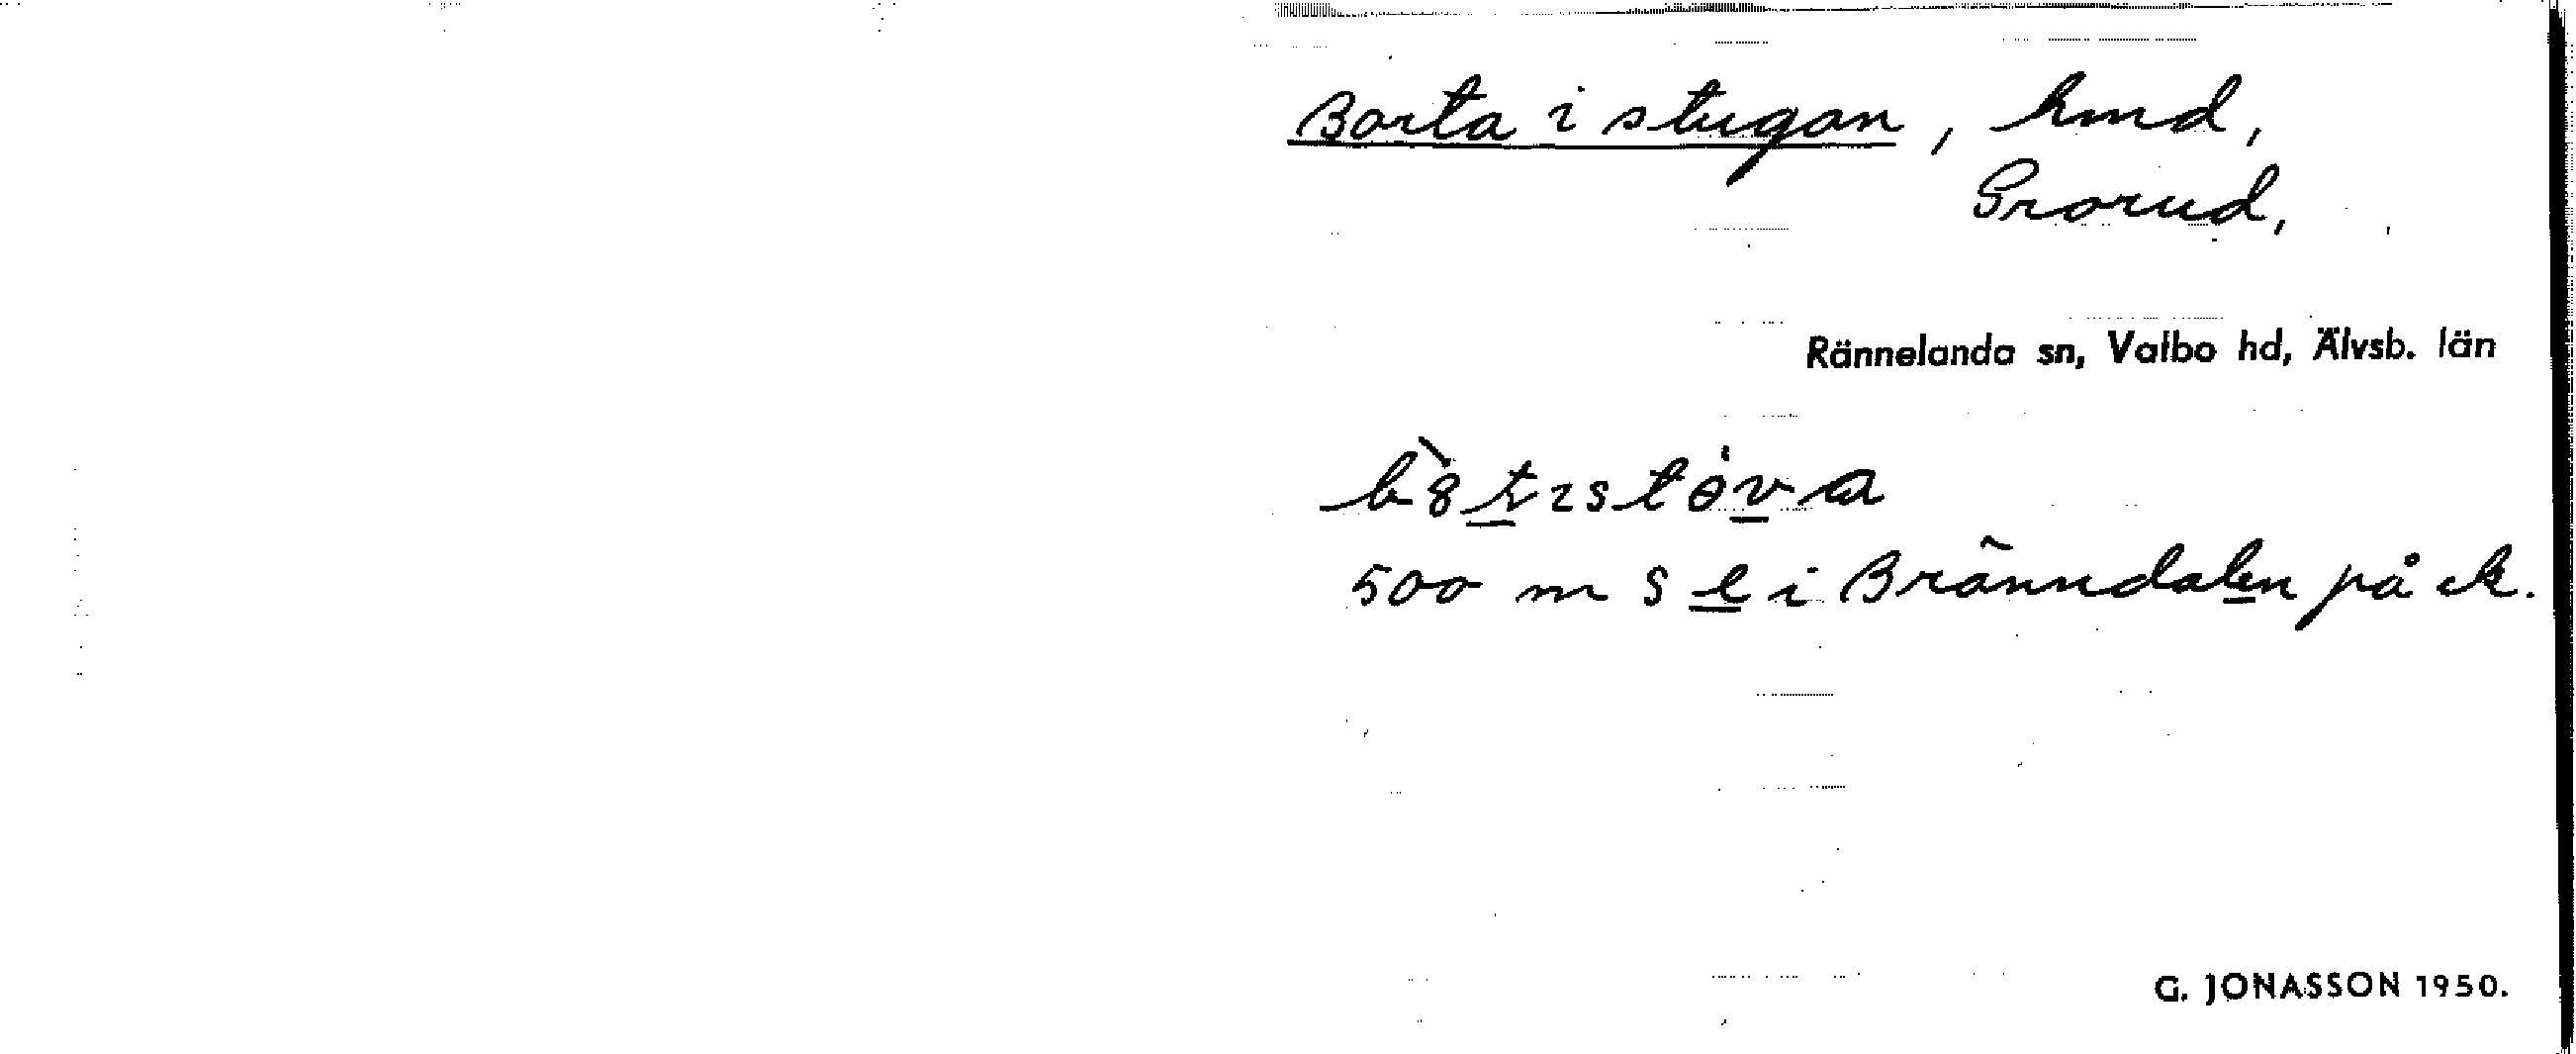 Borta i stugan, hmd,
Grorud,
Rännelanda sn, Valbo hd, Älvsb. län
500 m S e i Bränndalen på ek.
G. JONASSON 1950.